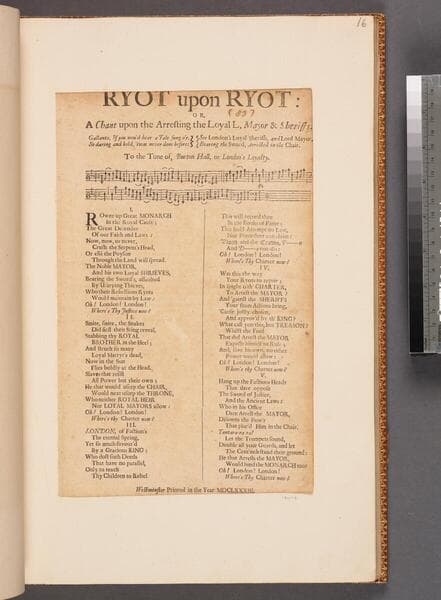 16
RYOT upon RYOT:
OR,
A Chant upon the Arresting the Loyal L. Mayor & Sheriffs.
Gallants, If you wou'd hear a Tale sung o'r,
So daring and bold, 'twas never done before;
See London's Loyal Sheriffs, and Lord Mayor,
Bearing the Sword, Arrested in the Chair.
To the Tune of, Burton Hall, or London's Loyalty.
I.
ROwze up Great MONARCH
In the Royal Cause;
The Great Defender
Of our Faith and Laws:
Now, now, or never,
Crush the Serpent's Head,
Or else the Poyson
Through the Land will spread.
The Noble MAYOR,
And his two Loyal SHRIEVES,
Bearing the Sword's, assaulted
By Usurping Thieves,
Who their Rebellious Ryots
Wou'd maintain by Law:
Oh! London! London!
Where's Thy Justice now?
II.
Smite, smite, the Snakes
Did first their Sting reveal,
Stabbing thy ROYAL
BROTHER in the Heel;
And struck so many
Loyal Martyrs dead,
Now in the Sun
Flies boldly at the Head,
Slaves that resist
All Power but their own;
He that would usurp the CHAIR,
Would next usurp the THRONE,
Who neither ROYAL HEIR
Nor LOYAL MAYORS allow:
Oh! London! London!
Where's thy Charter now?
III.
LONDON, of Faction's
The eternal Spring,
Yet so much favour'd
By a Gracious KING;
Who dost such Deeds
That have no parallel,
Only to teach
Thy Children to Rebel
This will record thee
In the Books of Fame;
This bold Attempt no Law,
Nor Power
and the
And
Oh! London! London!
Where's Thy Charter now?
IV.
Was this the way
Your Ryots to repair;
In spight o'th' CHARTER,
To Arrest the MAYOR?
And 'gainst the SHERIFFS
Your sham Actions bring,
'Cause justly chosen,
And approv'd by th' KING?
What call you this, but TREASON?
What's the Fool
That did Arrest the MAYOR
Expects himself to Rule;
And, like himself, no other
Power would allow:
Oh! London! London!
Where's thy Charter now?
V.
Hang up the Factious Heads
That dare oppose
The Sword of Justice,
And the Ancient Laws:
Who in his Office
Dare Arrest the MAYOR,
Disowns the Pow'r
That plac'd Him in the Chair.
Let the Trumpets sound,
Double all your Guards, and let
The Cent'nels stand their ground:
He that Arrests the MAYOR,
Would bind the MONARCH too:
Oh! London! London!
Where's Thy Charter now?
Westminster Printed in the Year MDCLXXXIII.